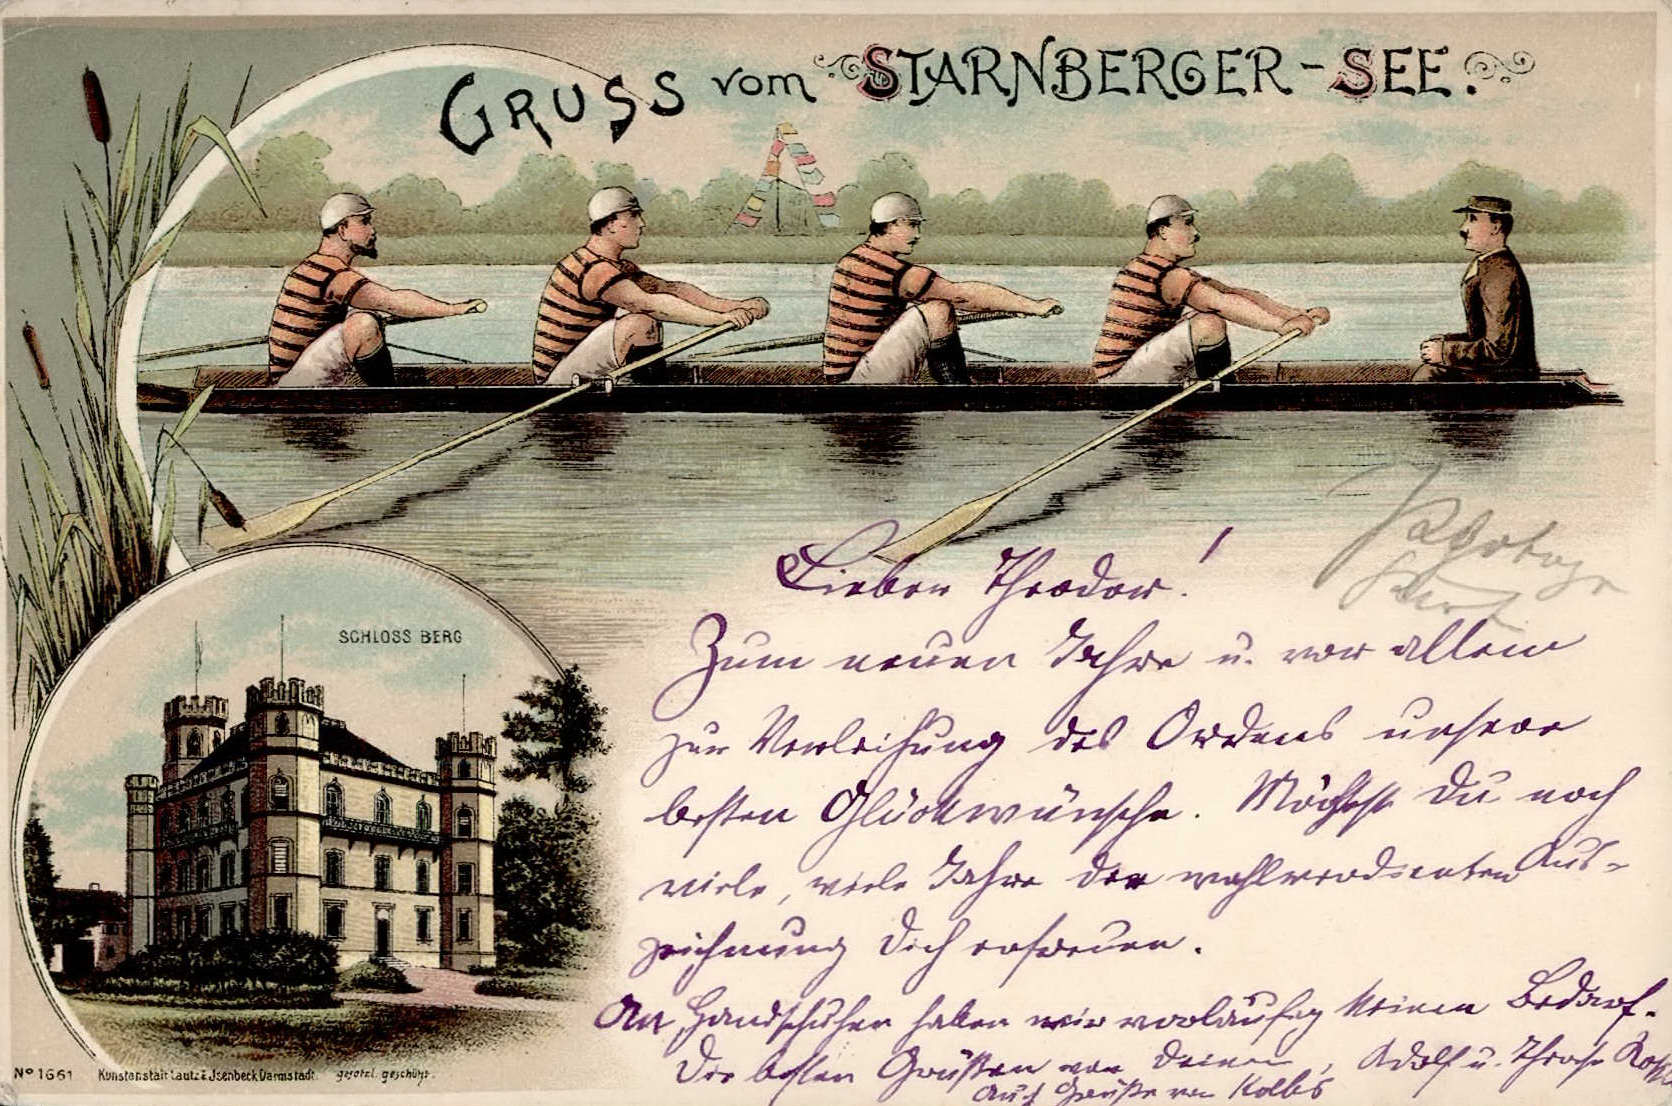 GRUSS vom STARNBERGER-SEE.
Lieber Theodor!
Zum neuen Jahre u. vor allem
zur Verleihung des Ordens unsere
besten Glückwünsche. Möchtest Du noch
viele, viele Jahre der wohlverdienten Aus-
zeichnung Dich erfreuen.
An Handschuhen haben wir vorläufig keinen Bedarf.
Die besten Grüßen von Deinen, Adolf u.
Auch Grüße von Kolbs
SCHLOSS BERG
No 1661 Kunstanstalt Lautz & Jsenbeck, Darmstadt. gesetzl. geschützt.